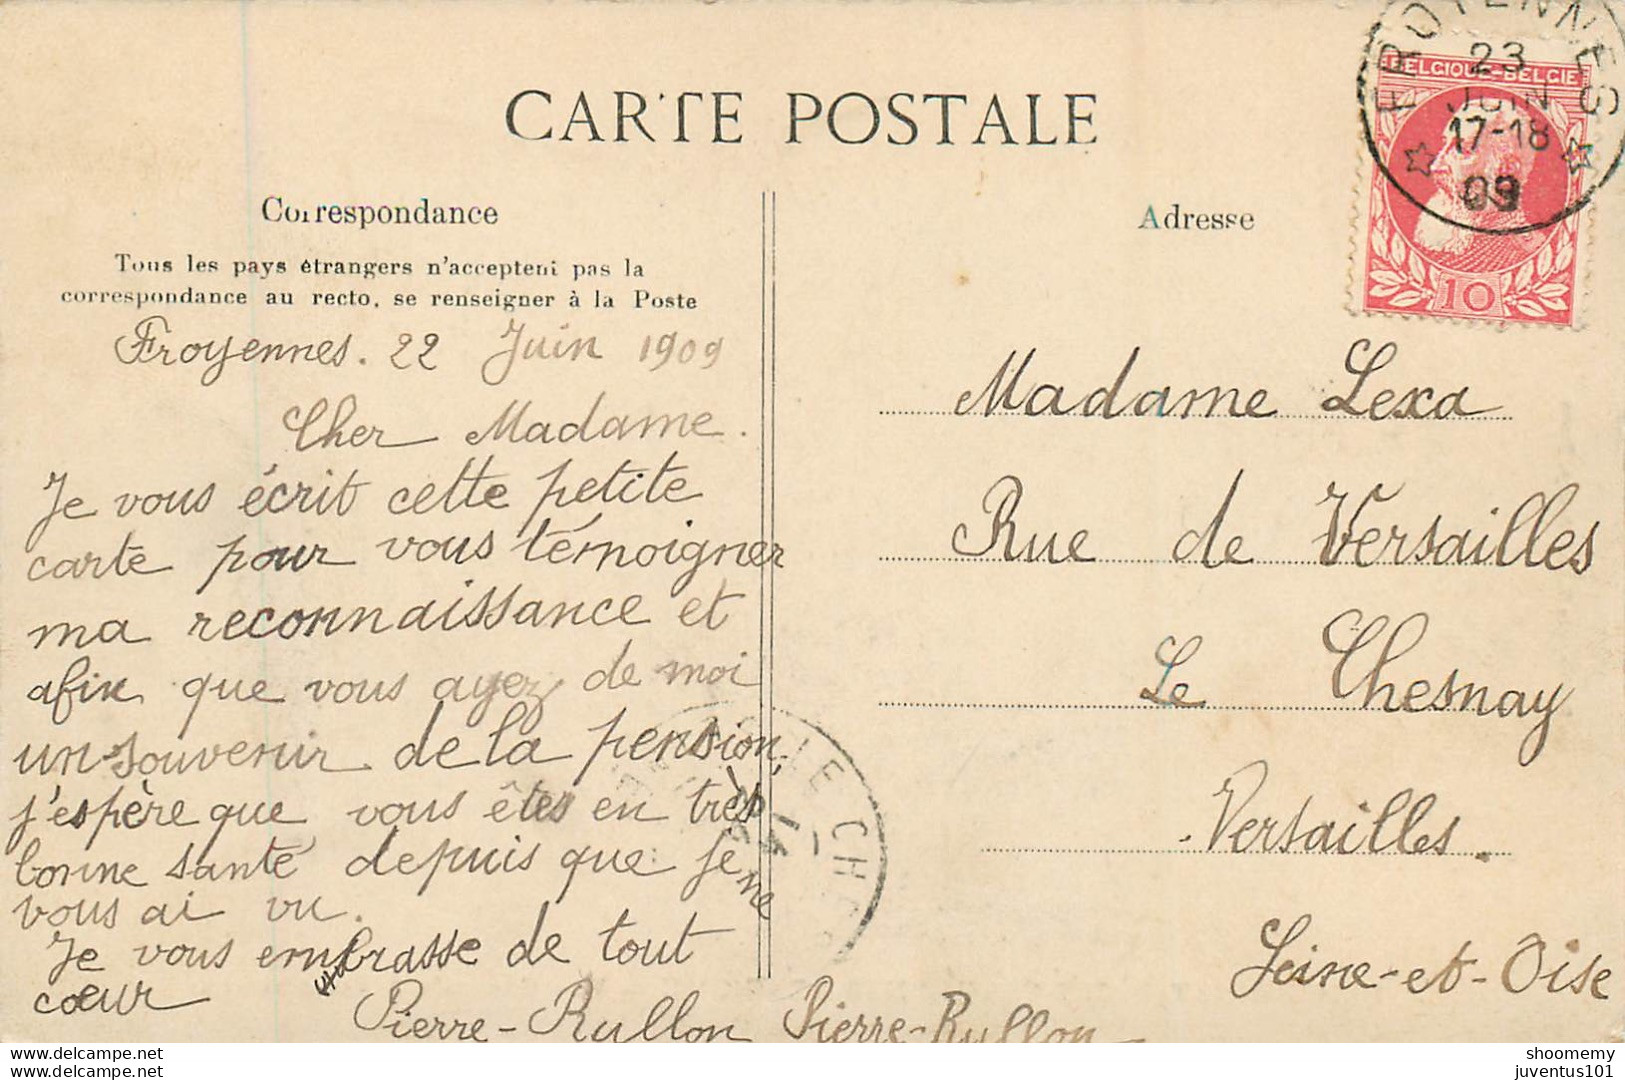 CARTE POSTALE
Correspondance
Tous les pays étrangers n'acceptent pas la
correspondance au recto, se renseigner à la Poste
Froyennes. 22 Juin 1909
Cher Madame.
Je vous écrit cette petite
carte pour vous témoigner
ma reconnaissance et
afin que vous ayez de moi
un souvenir de la pension,
j'espère que vous êtes en très
bonne santé depuis que je ne
vous ai vu.
Je vous embrasse de tout
cœur
Pierre-Rullon Pierre-Rullon
Adresse
Madame Lexa
Rue de Versailles
Le Chesnay
Versailles.
Seine-et-Oise
FROYENNES
23
JUIN
17-18
09
BELGIQUE-BELGIE
10
LE CH
www.delcampe.net
www.delcampe.net
shoomemy
juventus101